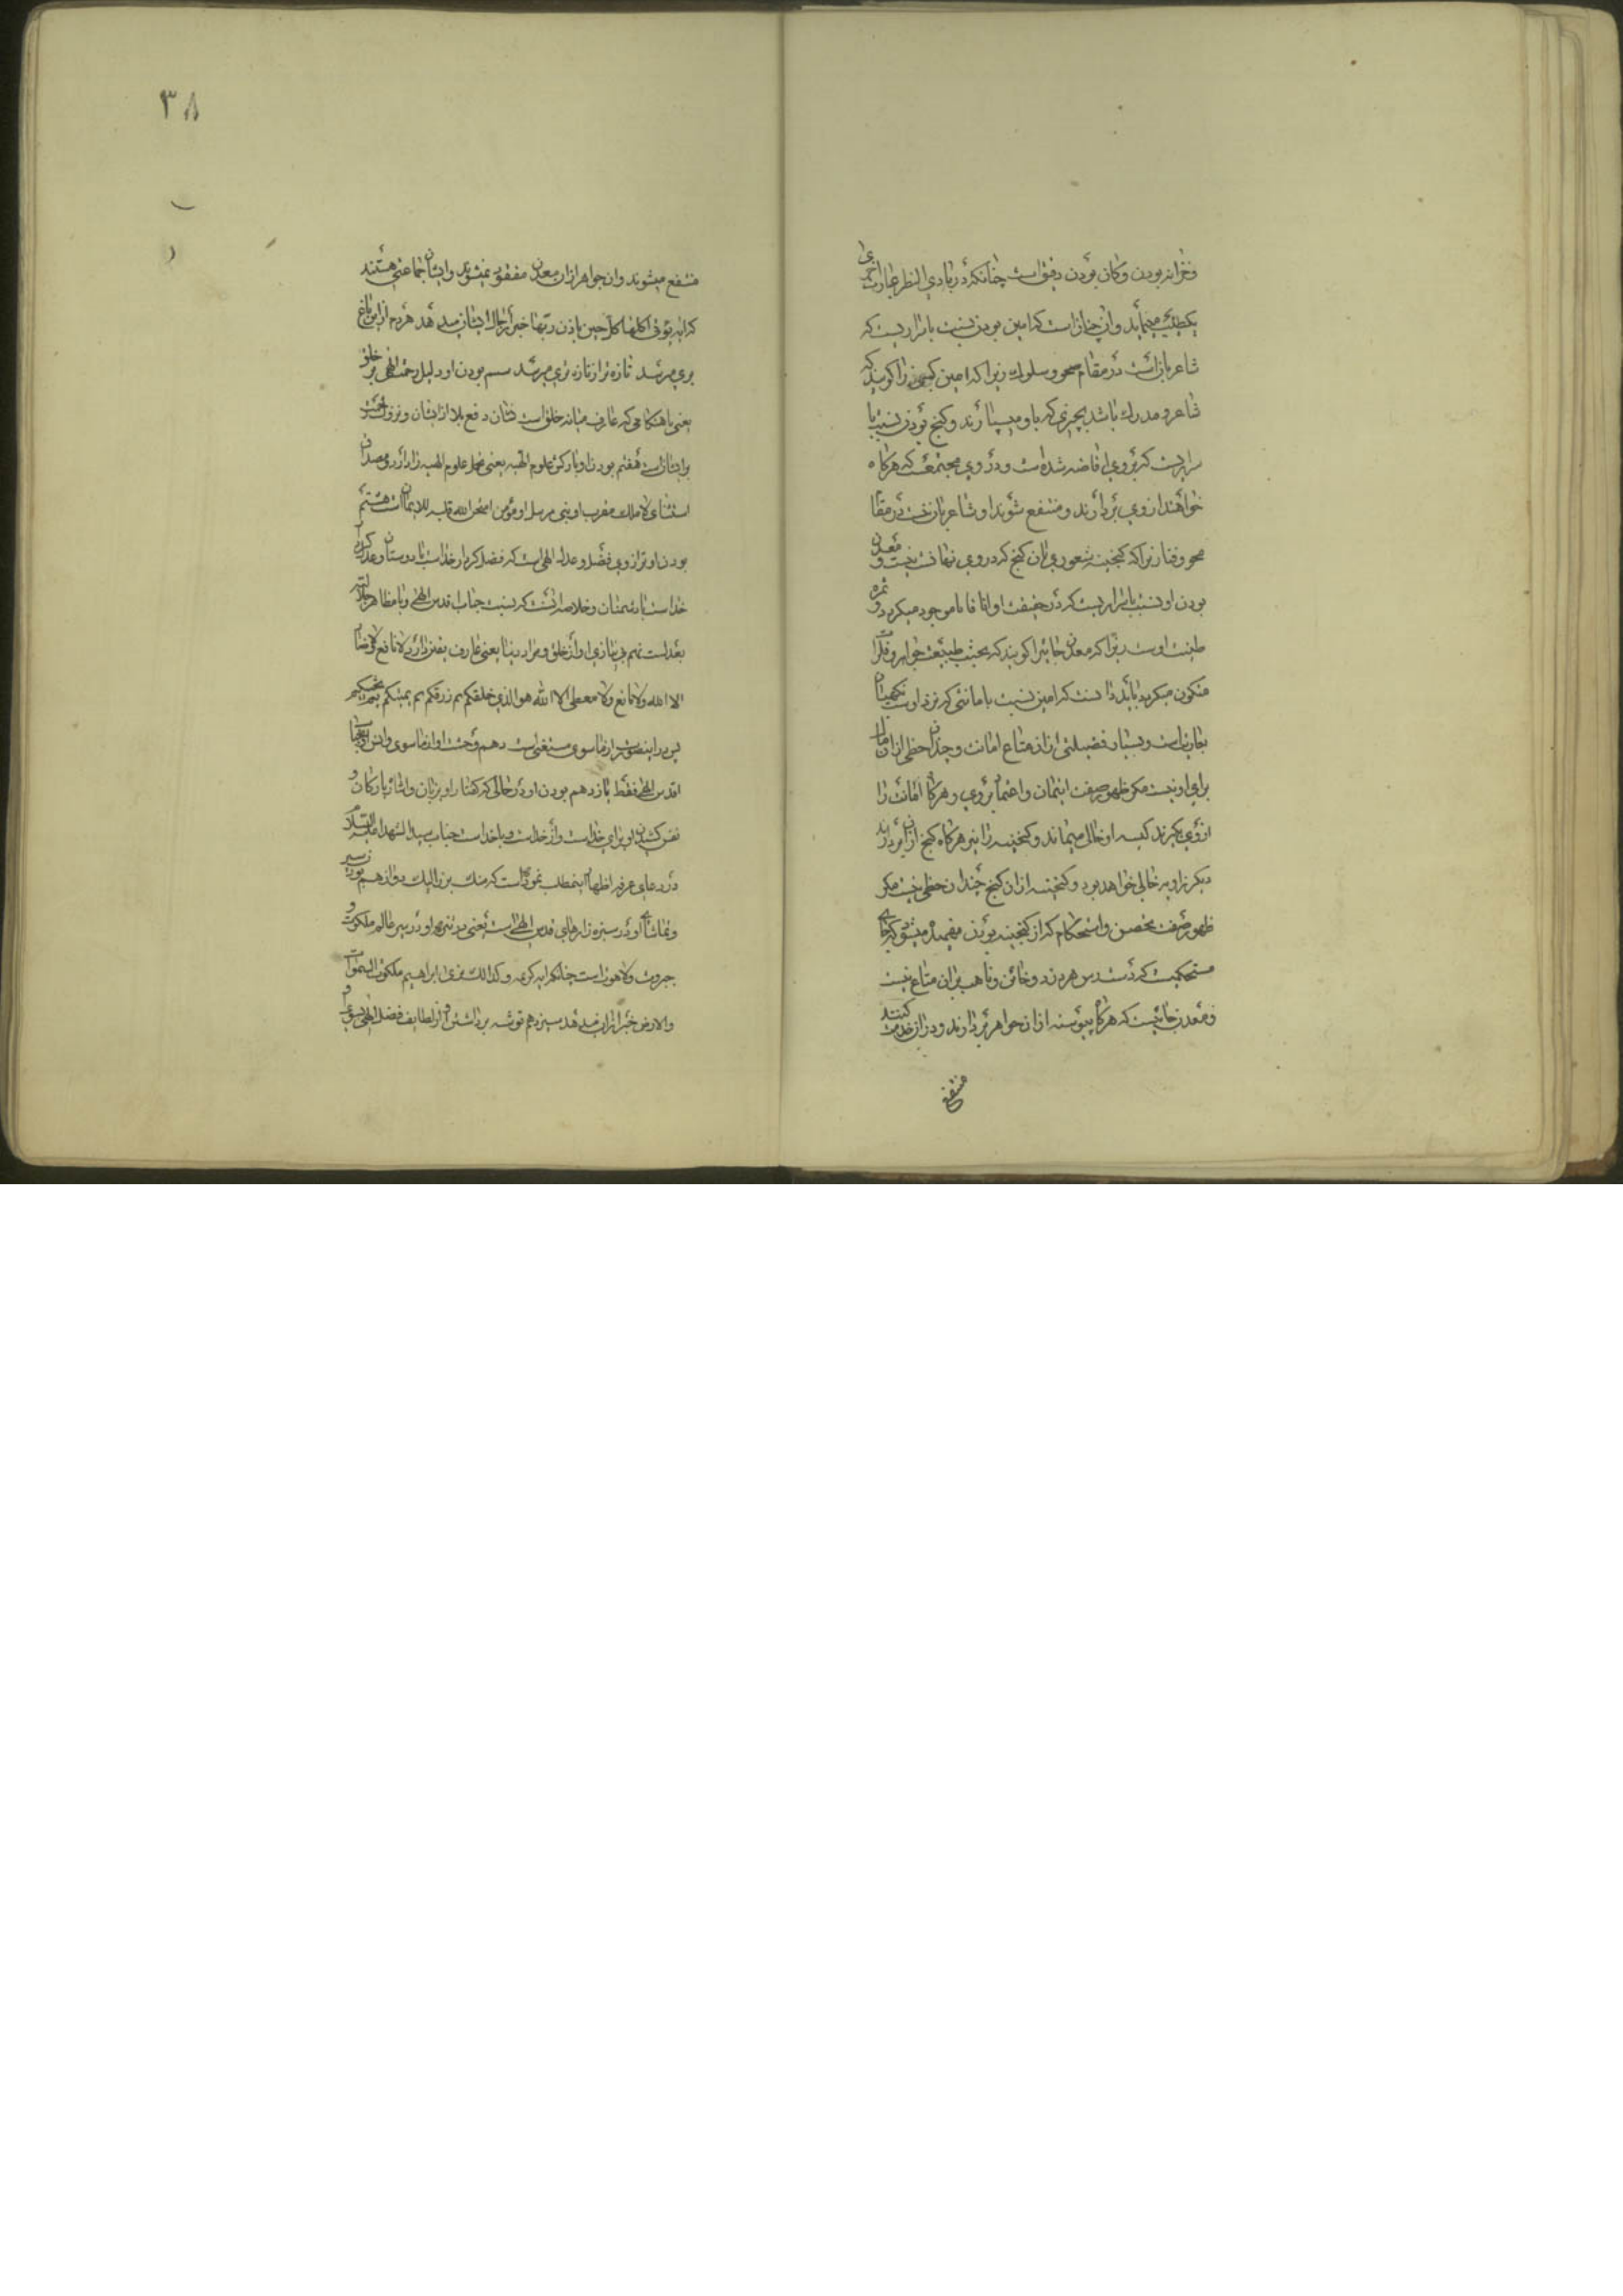 و خزانه بودن و کان بودن دقیق است چنانکه در بادی النظر عبارت اخری
یکدیگر مینماید و آن چنان است که امین بودن نسبت باسراریست که
شاعر بآن است در مقام صحو و سلوک زیرا که امین کسی را گویند که
شاعر و مدرک باشد بچیزی که باو میسپارند و گنج بودن نسبت با
سراریست که بر وی افاضه شده است و در وی مجتمع که هرگاه
خواهند از وی بردارند و منتفع شوند او شاعر بآن نیست در مقام
محو و فنا زیرا که گنجینه شعوری بآن گنج که در وی نهان است نیست و معدن
بودن او نسبت باسراریست که در حقیقت او آنا فانا موجود میگردد و ثمره
طینت اوست زیرا که معدن جائیرا گویند که بحسب طبیعت جواهر و فلزات
متکون میگردد باید دانست که امین نسبت بامانتی که نزد اوست نگهبان
بعاریتست و بسیار فضیلتی از آن متاع امانت و چندان حظی از آن مال
برای او نیست مگر ظهور صفت ایتمان و اعتماد بر وی و هرگاه امانت را
از وی بگیرند کیسه او خالی میماند و گنجینه را نیز هرگاه گنج از آن بردارند
دیگر زاویه خالی خواهد بود و گنجینه از آن گنج چندان حظی نیست مگر
ظهور صفت تحصن و استحکام که از گنجینه بودن فهمیده میشود که جای
مستحکمیست که دست هر دزد و خائن و ناهب بر آن متاع نیست
و معدن جائیست که هرگاه پیوسته از آن جواهر بردارند و در آن خدمت کنند
منتفع
۳۸
منتفع میشوند و آن جواهر از آن معدن مفقود نمیشوند و ایشان جماعتی هستند
که آیه تؤتی اکلها کل حین باذن ربها خبر از حال ایشان میدهد هر دم از این باغ
بری میرسد تازه تر از تازه تری میرسد ششم بودن او دلیل رحمت الهی بر خلق
یعنی تا هنگامی که عارف میانه خلق است نشان دفع بلا از ایشان و نزول رحمت
بر ایشان است هفتم بودن او بارکش علوم الهیه یعنی تحمل علوم الهیه را دارد و مصداق
استثنای لا ملک مقرب او نبی مرسل او مؤمن امتحن الله قلبه للایمان است هشتم
بودن او ترازوی فضل و عدل الهی است که فضل کردار خداست با دوستان و عدل کردار
خداست با دشمنان و خلاصه آنست که نسبت جناب اقدس الهی و با مظاهر جلالیه
بعدلست نهم بی نیازی او از خلق و مراد دنیا یعنی عارف یقین دارد که لا نافع و لا ضار
الا الله و لا مانع و لا معطی الا الله هو الذی خلقکم ثم رزقکم ثم یمیتکم ثم یحییکم
پس در اینصورت از ماسوی مستغنی است دهم وحشت او از ماسوی و انس او بجناب
اقدس الهی فقط یازدهم بودن او در حالی که گفتار او بزبان و اشاره بارکان و
نفس کشیدن او برای خداست و از خداست و با خداست جناب سید الشهدا علیه السلام
در دعای عرفه اظهار اینمطلب نموده است که منک بک و الیک دوازدهم بودن سیر
و تماشای او در سبزه زارهای قدس الهی است یعنی در تنزه او در سیر عالم ملکوت و
جبروت و لاهوت است چنانکه آیه کریمه و کذالک نری ابراهیم ملکوت السموات
و الارض خبر از آن میدهد سیزدهم توشه برداشتن او از لطایف فضل الهی بسوی او